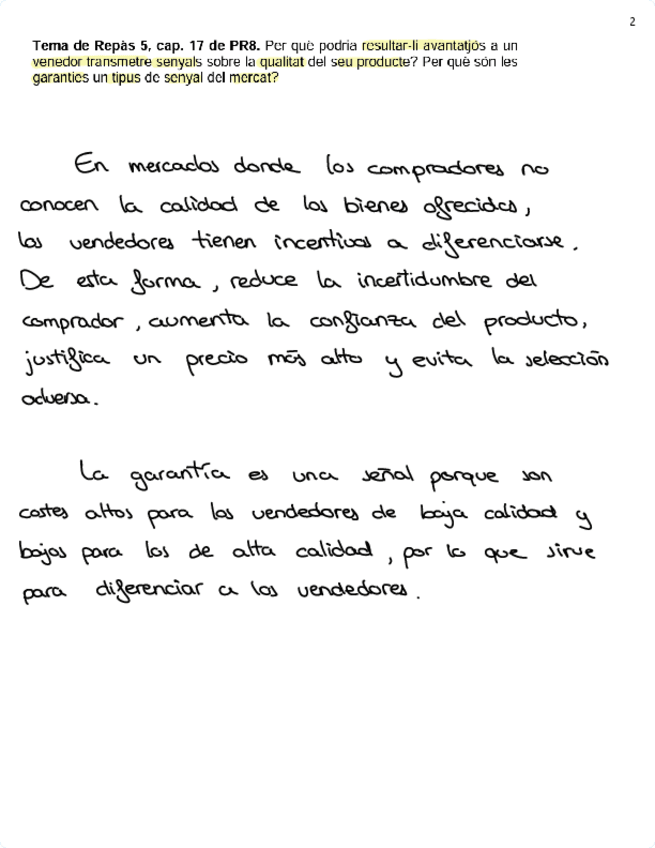 2
Tema de Repàs 5, cap. 17 de PR8. Per què podria resultar-li avantatjós a un
venedor transmetre senyals sobre la qualitat del seu producte? Per què són les
garanties un tipus de senyal del mercat?
En mercados donde los compradores no
conocen la calidad de los bienes ofrecidos,
los vendedores tienen incentivos a diferenciarse.
De esta forma, reduce la incertidumbre del
comprador, aumenta la confianza del producto,
justifica un precio más alto y evita la selección
adversa.
La garantía es una señal porque son
costes altos para los vendedores de baja calidad y
bajos para los de alta calidad, por lo que sirve
para diferenciar a los vendedores.